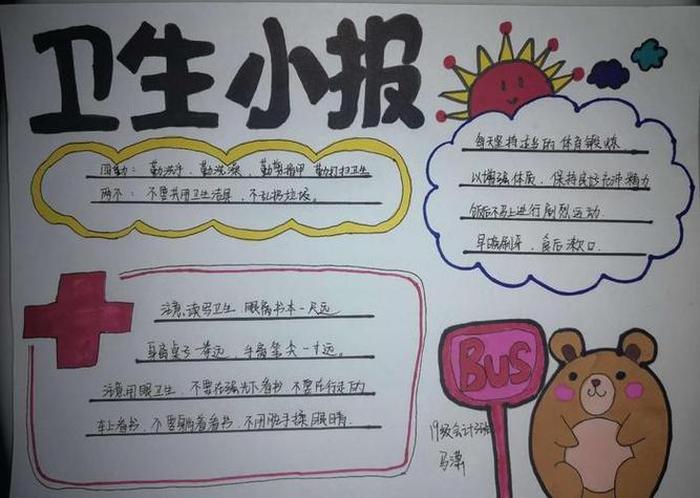 卫生小报
四勤：勤洗手、勤洗澡、勤剪指甲 勤打扫卫生
两不：不要共用卫生洁具，不乱扔垃圾。
每天坚持适当的体育锻炼
以增强体质，保持良好充沛精力
饭后不马上进行剧烈运动
早晚刷牙，食后漱口.
注意读写卫生 眼离书本一尺远
身离桌子一拳远，手离笔尖一寸远。
注意用眼卫生，不要在强光下看书 不要在行走的
车上看书，不要躺着看书，不用脏手揉眼睛.
BUS
19级会计